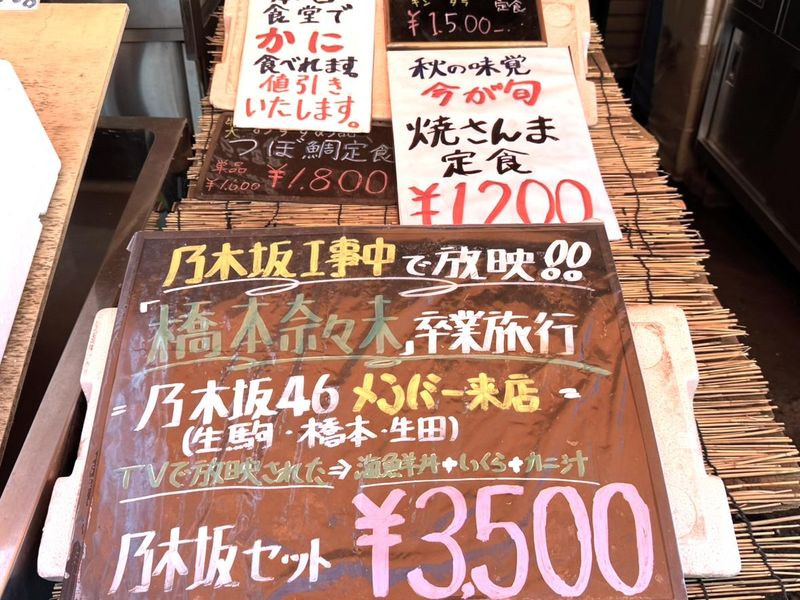 食堂で
かに
食べれます。
値引き
いたします。
定食
¥1500
秋の味覚
今が旬
焼さんま
定食
¥1200
つぼ鯛定食
単品
¥1,600
¥1.800
乃木坂工事中で放映!!
「橋本奈々未」卒業旅行
=乃木坂46メンバー来店=
(生駒・橋本・生田)
TVで放映された⇒海鮮丼+いくら+カニ汁
乃木坂セット ¥3,500